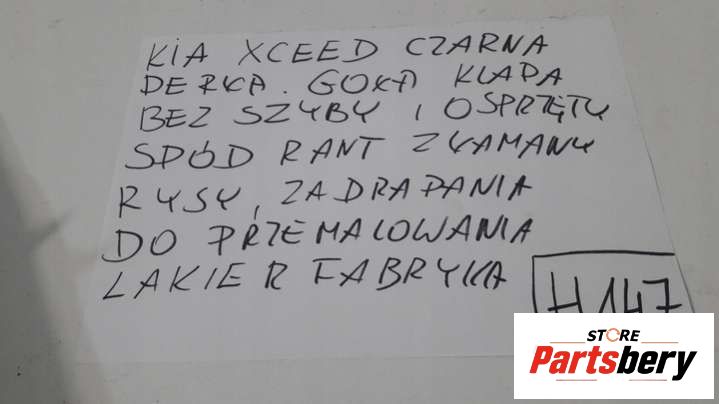 KIA XCEED CZARNA
DERKA. GOŁA KLAPA
BEZ SZYBY I OSPRZĘTU
SPÓD RANT ZŁAMANY
RYSY, ZADRAPANIA
DO PRZEMALOWANIA
LAKIER FABRYKA
H147
STORE
Partsbery